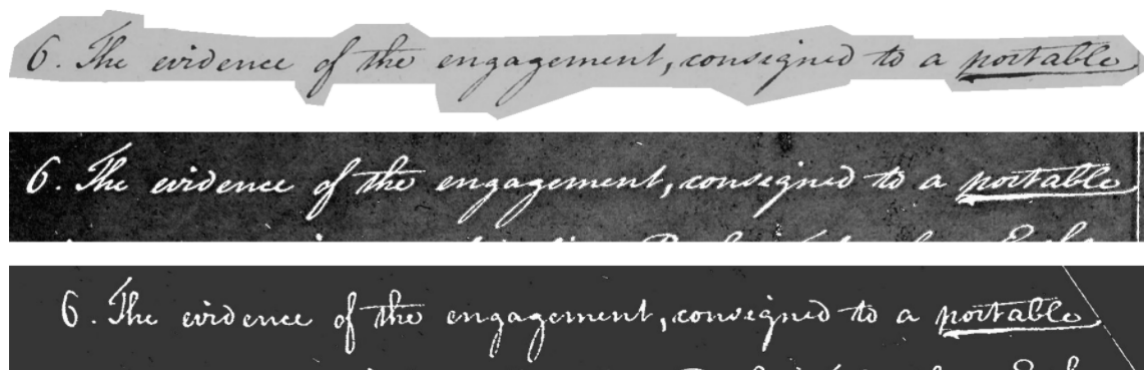 6. The evidence of the engagement, consigned to a portable
6. The evidence of the engagement, consigned to a portable
6. The evidence of the engagement, consigned to a portable